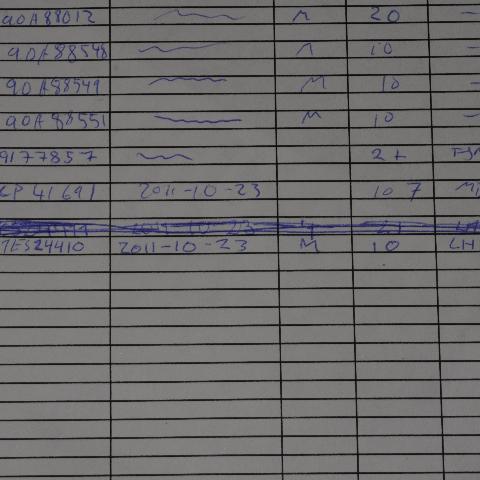 90A88012 M 20
90A88548 M 10
90A88549 M 10
90A88551 M 10
9177857 2+
CP41691 2011-10-23 107
TES24410 2011-10-23 M 10 LH